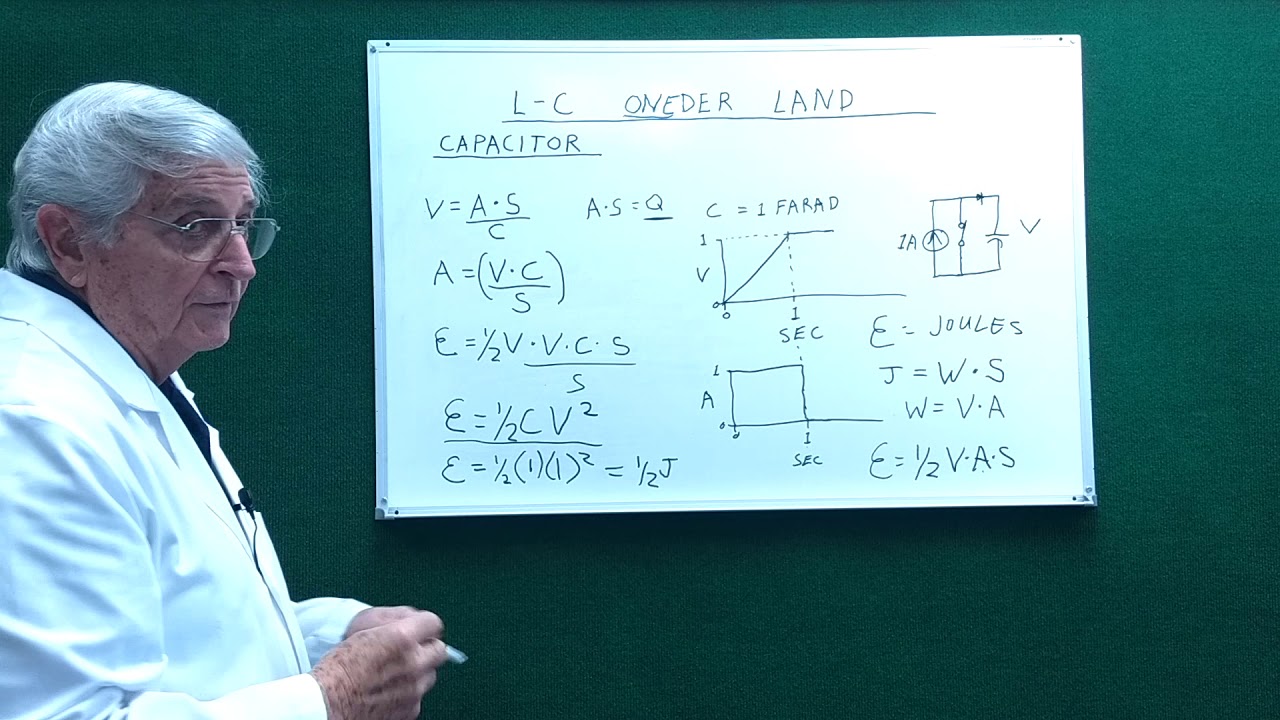 L-C ONEDER LAND
CAPACITOR
V = A·S / C
A·S = Q
C = 1 FARAD
A = (V·C / S)
ℰ = 1/2 V · V·C·S / S
ℰ = 1/2 C V²
ℰ = 1/2 (1)(1)² = 1/2 J
1
V
0
0
1
SEC
1
A
0
0
1
SEC
1A
V
ℰ = JOULES
J = W·S
W = V·A
ℰ = 1/2 V·A·S